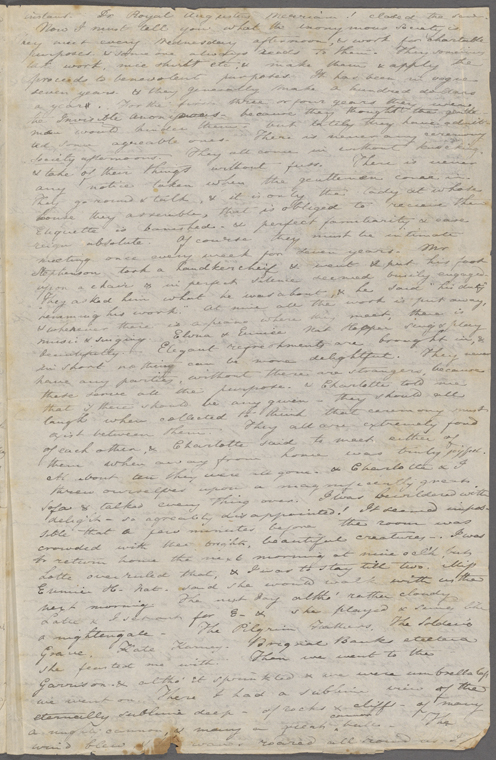 instant. Dr Royal Augustus Merriam! class of the
Now I must tell you what the harmonious society is
they meet every Wednesday afternoon, & work for charitable
purposes & some are always reads to them. They sometimes
work, mice shirts etc, & make them & apply the
proceeds to benevolent purposes. It has been in vogue
seven years, & they generally make a hundred dollars
a year. For the first three or four years they were
because they thought the gentle
men would hinder them, but lately they have admit
ed some agreeable ones. There is no ceremony
society afternoons. They all come in without knocking
& take of their things without fuss. There is never
any notice taken when the gentlemen come in
they go round & talk, & it is only the lady at whose
house they assemble, that is obliged to receive them
Etiquette is banished, & perfect familiarity & ease
reign absolute. Of course they must be intimate
meeting once every week for seven years. Mr
Stephenson took a handkerchief & went & put his foot
upon a chair & in perfect silence seemed busily engaged
They asked him what he was about & he said "his duty
renewing his work." At nine all the work is put away,
& whenever there is a piano where they meet, there is
music & singing. Elvira & Eunice Hat Happer sing & play
beautifully. Elegant refreshments are brought in, &
in short nothing can be more delightful. They never
have any parties, without there are strangers, because
these serve all the purpose. & Charlotte told me
that if there should be any given, they should all
laugh when collected to think that ceremony must
exist between them. They all are extremely fond
of each other, & Charlotte said to meet either of
them when away from home was truly joyful.
At about ten they were all gone, & Charlotte & I
threw ourselves upon a magnificently great
sofa & talked every thing over. I was bewildered with
delight - so agreeably disappointed! It seemed impos
sible that a few minutes before, the room was
crowded with these bright, beautiful creatures - I was
to return home the next morning at nine oclk but
Lotte overruled that, & I was to stay till two. Miss
Eunice H. Hat. said she would walk with us the
next morning. The next day altho' rather cloudy
Lotte & I for E- & she played & sung like
a nightengale - The Pilgrim Fathers, The Soldiers
Grave, Kate Karney, Brignal Banks etcetera
she feasted me with. Then we went to the
Garrison & altho' it sprinkled & we were umbrellaless
we went on. There I had a sublime view of the
eternally sublime deep - of rocks & cliffs - of many
a mighty cannon, & many a pile of cannon balls - The
wind blew & the waves roared all round us